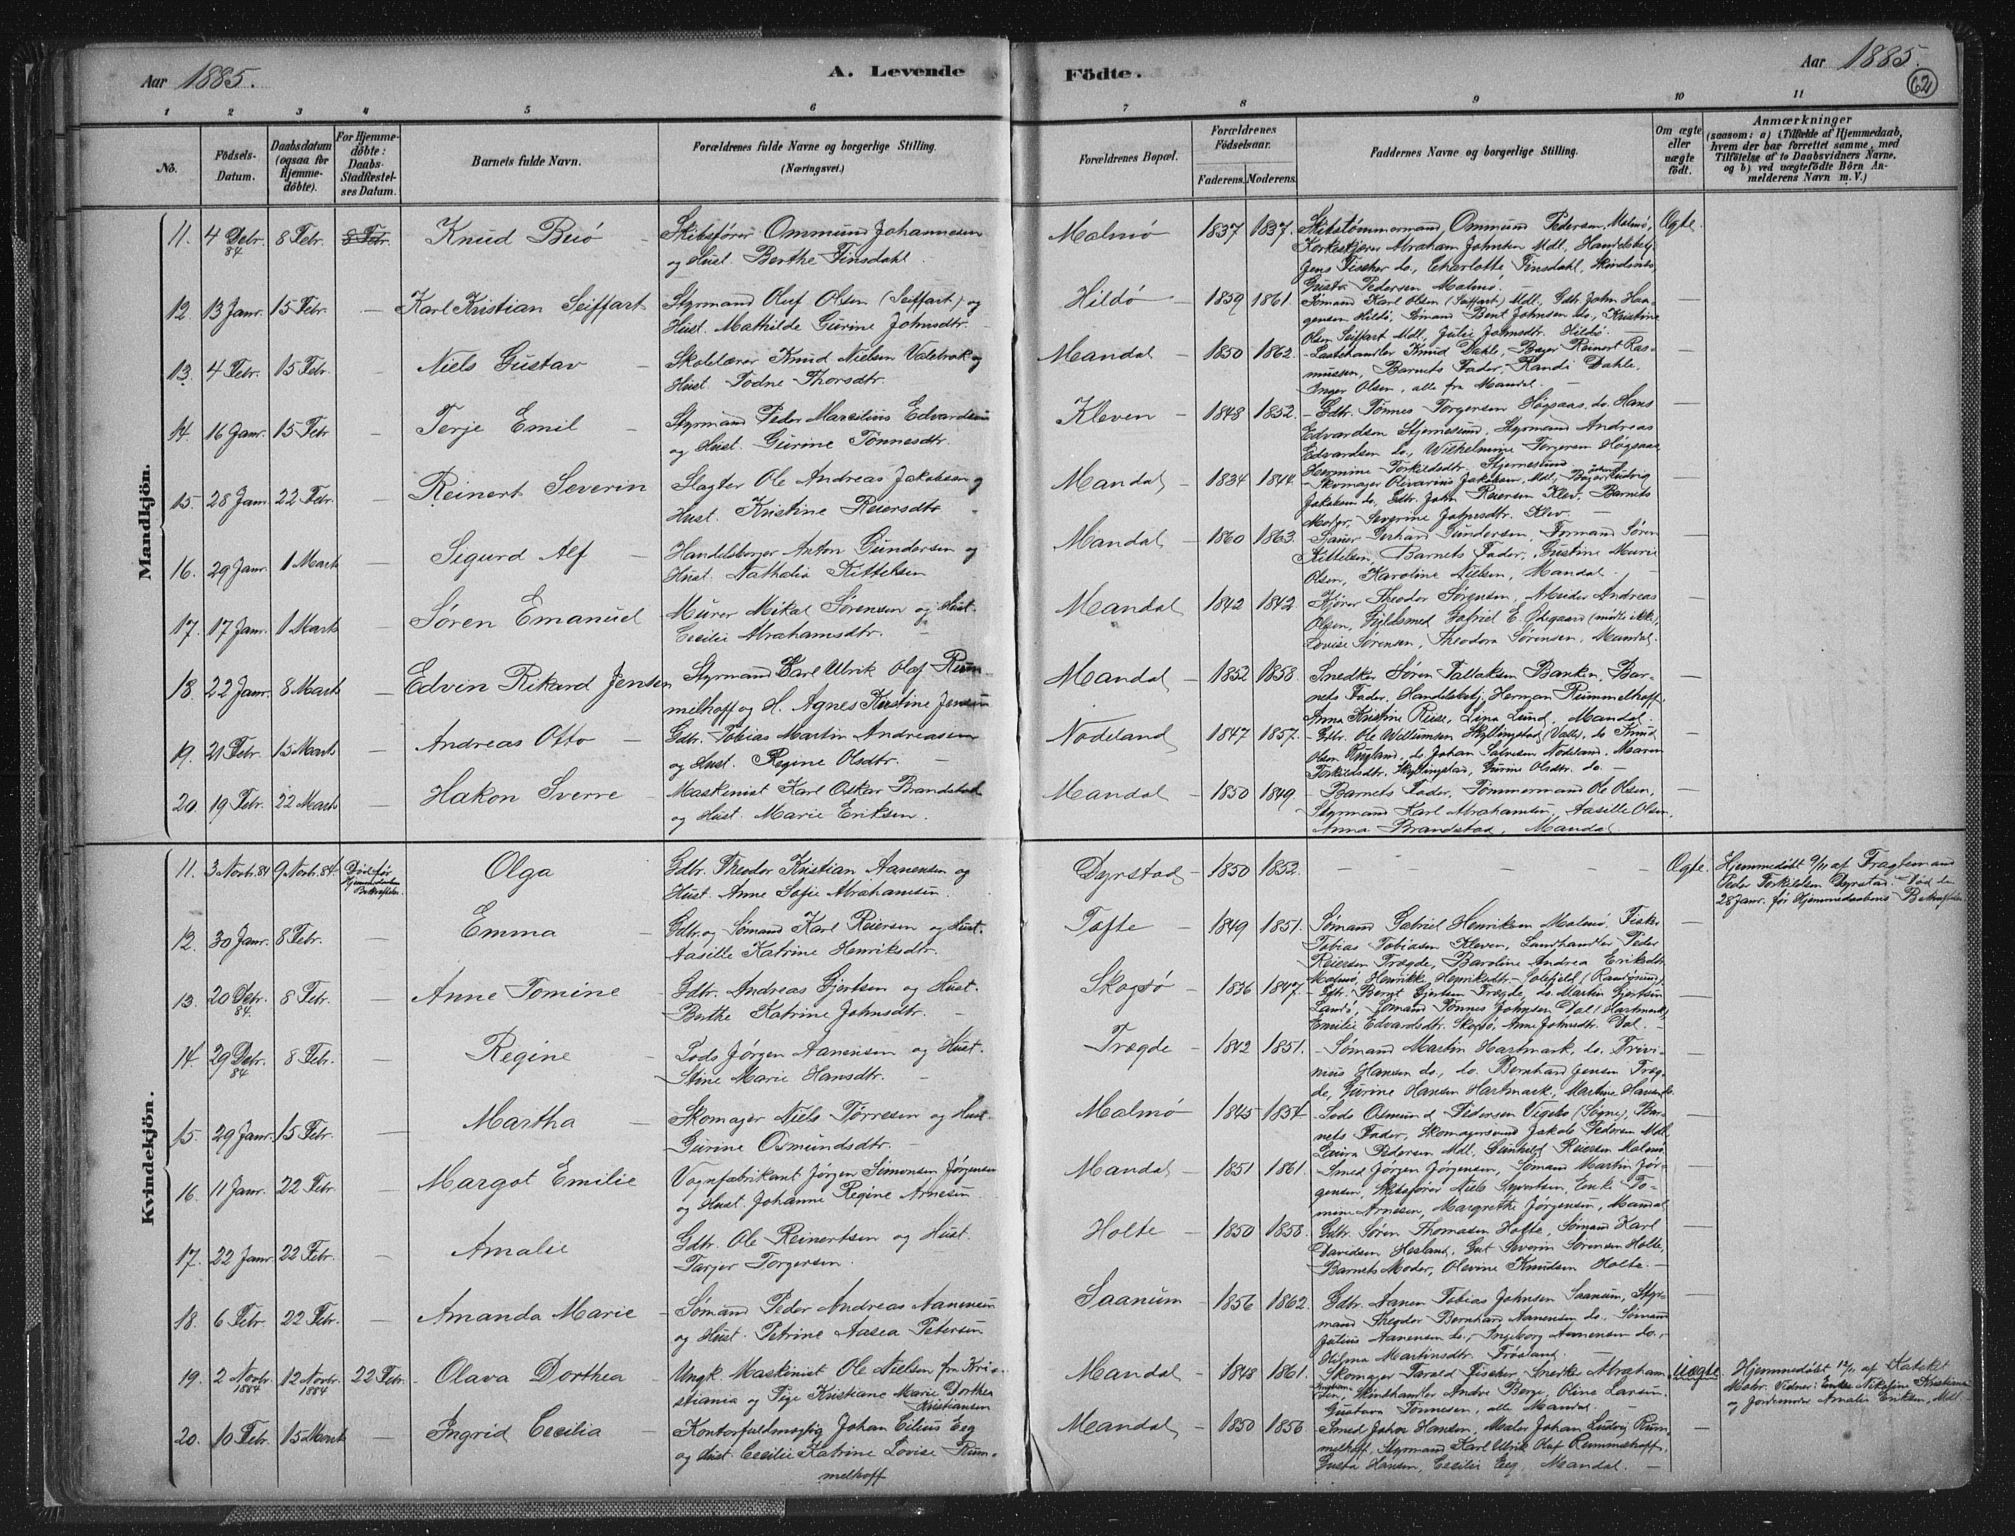 Aar 1885.
A. Levende Födte.
Aar 1885.
62
1 2 3 4 5 6 7 8 9 10 11
No.
Födsels-Datum.
Daabsdatum (ogsaa for Hjemmedöbte).
For Hjemmedöbte: Daabs-Stadfæstelses Datum.
Barnets fulde Navn.
Forældrenes fulde Navne og borgerlige Stilling. (Næringsvei.)
Forældrenes Bopæl.
Forældrenes Födselsaar.
Faderens. Moderens.
Faddernes Navne og borgerlige Stilling.
Om ægte eller uægte födt.
Anmærkninger
(saasom: a) i Tilfælde af Hjemmedaab, hvem der har forrettet samme, med Tilföielse af to Daabsvidners Navne, og b) ved uægtefödte Börn Anmelderens Navn m. V.)
Mandkjön.
11. 4 Debr. 84 8 Febr. 8 Febr. Knud Buö – Skibsfører Ommund Johannesen
og Hust. Berthe Finsdahl.
Malmö – 1837 1837. Skibstömmermand Ommund Pedersen, Malmö, Ægte.
Abraham Johnsen Mdl, Handelsbetj.
Jens Fischer do., Charlotte Finsdahl,
Pedersen Malmö.
12. 13 Janr. 15 Febr. – Karl Kristian Seiffart Styrmand Oluf Olsen (Seiffart) og
Hust. Mathilde Gurine Johnsdtr.
Hildö – 1859 1861. Sömand Karl Olsen (Seiffart) Mdl, Gdtr. John Haa- –
gensen Hildö, Sömand Bent Johnsen do., Kristine
Olsen Seiffart Mdl, Julie Johnsdtr. Hildö.
13. 4 Febr. 15 Febr. – Niels Gustav – Skolelærer Knud Nielsen Valebrok og
Hust. Todne Thorsdtr.
Mandal – 1850 1862. – Knud Dahle, Reinert Ras- –
mussen, Barnets Fader, Randi Dahle,
Inger Olsen, alle fra Mandal. –
14. 16 Janr. 15 Febr – Terje Emil – Styrmand Peder Marselius Edvardsen
og Hust. Gurine Tönnesdtr.
Kleven – 1848 1852. – Gdtr. Tönnes Torgersen Högsaas, do. Hans –
Edvardsen Stjernesund, Styrmand Andreas
Edvardsen do., Wilhelmine Torgersen Högsaas
Hermine Torkildsdtr. Stjernesund
15. 28 Janr. 22 Febr. – Reinert Severin Slagter Ole Andreas Jakobsen og
Hust. Kristine Reiersdtr.
Mandal – 1834 1844. – Skomager Olivarius Jakobsen, Mdl, Ludvig –
Jakobsen do., Gdtr. John Reiersen Klev, Barnets
Moder, Severine Johnsdtr. Klev.
16. 29 Janr. 1 Marts – Sigurd Alf – Handelsborger Anton Gundersen og
Hust. Nathalia Kittelsen
Mandal – 1860 1863. Gerhard Gundersen, Formand Sören –
Kittelsen, Barnets Fader, Gustine Marie
Olsen, Karoline Nielsen, Mandal.
17. 17 Janr. 1 Marts – Sören Emanuel Murer Mikal Sörensen og Hust.
Cecilie Abrahamsdtr. –
Mandal 1842 1842. Theodor Sörensen, Andreas –
Olsen, Gabriel E. Ödegaard (mödte ikke),
Lovise Sörensen, Theodora Sörensen, Mandal.
18. 22 Janr. 8 Marts – Edvin Rikard Jensen Styrmand Carl Ulrik Olaf Rum-
melhoff og H. Agnes Kristine Jensen
Mandal – 1852 1858. Snedker Sören Tallaksen Banken, Bar- –
nets Fader, Handelsbetj. Herman Rummelhoff,
Anna Kristine Reise, Lina Lund, Mandal –
19. 21 Febr. 15 Marts – Andreas Otto – Gdtr. Tobias Martin Andreasen
og Hust. Regine Olsdtr. –
Nödeland – 1847 1857. – Gdtr. Ole Willumsen Skyllingstad (Valle), do. Knud –
Olsen do. Johan Nodeland, Maren
Torkildsdtr. Skyllingstad, Gurine Olsdtr. do. –
20. 19 Febr. 22 Marts – Hakon Sverre – Maskinist Karl Oskar Brandstad
og Hust. Marie Eriksen.
Mandal – 1850 1849. – Barnets Fader, Tömmermand Ole Olsen, –
Styrmand Karl Abrahamsen, Aasille Olsen,
Anna Brandstad, Mandal
Kvindekjön.
11. 3 Novbr. 84 9 Novbr. 84 Död för Hjemmedaabens Bekræftelse. Olga Gdtr. Theodor Kristian Aanensen og
Hust. Anne Sofie Abrahamsen
Dyrstad 1850 1852. – – – – Ægte. Hjemmedöbt 9/11 af
Peder Torkildsen Dyrstad. Död den
28 Janr. för Hjemmedaabens Bekræftelse
12. 30 Janr. 8 Febr. – Emma – Gdtr. og Sömand Karl Reiersen og Hust.
Aasille Katrine Henriksdtr.
Tofte – 1849 1851. Sömand Gabriel Henriksen Malmö, Fisker –
Tobias Tobiasen Kleven, Landhandler Peder
Reiersen Trægde, Baroline Andrea Eriksdtr.
Malmö, Henrikke Henriksdtr. (Randösund).
13. 20 Debr. 84. 8 Febr. – Anne Tomine – Gdtr. Andreas Gjertsen og Hust.
Berthe Katrine Johnsdtr. –
Skogsö – 1836 1847. – Gdtr. Bergt Gjertsen Trægde, do. Martin Gjertsen –
Landö, Sömand Tönnes Johnsen Dal i Hartmark,
Emilie Edvardsdtr. Skogsö, Anne Johnsdtr. Dal. –
14. 29 Debr. 84 8 Febr. – Regine – Lods Jörgen Aanensen og Hust.
Stine Marie Hansdtr. –
Trægde – 1842 1851. – Sömand Martin Hartmark, do. Trivi- –
nius Hansen do., do. Bernhard Jensen Træg-
de, Gurine Hansen Hartmark, Martine Hansen do.
15. 29 Janr. 15 Febr. – Martha – Skomager Niels Törresen og Hust.
Gurine Osmundsdtr.
Malmö – 1845 1854. – Lods Osmund Pedersen Vigebo (Sögne), Bar- –
nets Fader, Skomagersvend Jakob Pedersen Mdl.
Laura Pedersen Mdl. Gunhild Reiersen Malmö.
16. 11 Janr. 22 Febr. – Margot Emilie Vognfabrikant Jörgen Simonsen Jörgensen
og Hust. Johanne Regine Arnesen
Mandal – 1851 1861. – Smed Jörgen Jörgensen, Sömand Martin Jör- –
gensen, Skibsförer Niels Syvertsen, Enke To-
mine Arnesen, Margrethe Jörgensen, Mandal
17. 22 Janr. 22 Febr. – Amalie Gdtr. Ole Reinertsen og Hust.
Tarjer Torgersen.
Holte – 1850 1858. Gdtr. Sören Thomasen Holte, Sömand Karl –
Davidsen Hesland, Gut Severin Sörensen Holte,
Barnets Moder, Olevine Knudsen Holte. –
18. 6 Febr. 22 Febr. – Amanda Marie – Sömand Peder Andreas Aanensen
og Hust. Petrine Aasea Petersen
Saanum – 1856 1862. Gdtr. Aanen Tobias Johnsen Saanum, Styr- –
mand Theodor Bernhard Aanensen do., Sömand
Julius Aanensen do., Ingeborg Aanensen do.,
Hilma Martinsdtr. Fröaland.
19. 2 Novbr. 1884 12 Novbr. 1884 22 Febr. Olava Dorthea – Ungk. Maskinist Ole Nielsen fra Kri-
stiania og Pige Kristiane Marie Dorthea
Kristiansen
Mandal – 1848 1861. – Skomager Tarald Fischer, Snedker Abraham Uægte Hjemmedöbt 12/11 af Kateket
Andre Berge, Olina Larsen,
Moler. Vidner: Enke Nikoline Kristiansen
Gustava Tönnesen, alle Mandal. –
og Jordemoder Amalie Eriksen, Mdl.
20. 10 Febr. 15 Marts – Ingrid Cecilia – Kontorfuldmægtig Johan Cilius Eeg
og Hust. Cecilie Katrine Lovise Rum-
melhoff
Mandal – 1850 1856 – Smed Johan Hansen, Maler Johan Ludvig Rum- –
melhoff, Styrmand Karl Ulrik Olaf Rummelhoff,
Gusta Hansen, Cecilie Eeg, Mandal. –